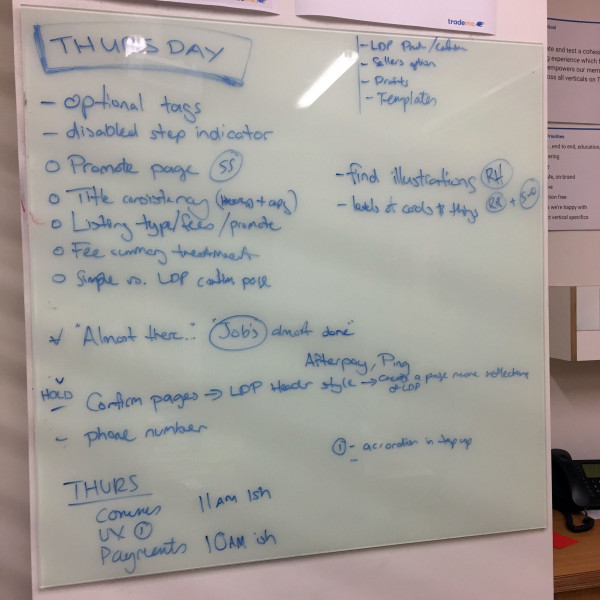 trademe
THURSDAY
- LDP
- Sellers option
- Drafts
- Templates
- optional tags
- disabled step indicator
o Promote page SS
o Title consistency ( + copy)
o Listing type/fees/promote
o Fee summary treatment
o Simple vs. LDP confirm page
- find illustrations RH
- levels of cards & things RR +
"Almost there.." "Job's almost done"
Afterpay, Ping
HOLD
- Confirm pages → LDP Header style → creates a page more reflective of LDP
- phone number
① - accordion in top up
-
THURS
Comms 11AM ish
UX ①
Payments 10AM ish
te and test a cohes
g experience which
empowers our mem
oss all verticals on T
Priorities
end to end, education
ering
le, on-brand
ive
tion free
we're happy with
t vertical specifics